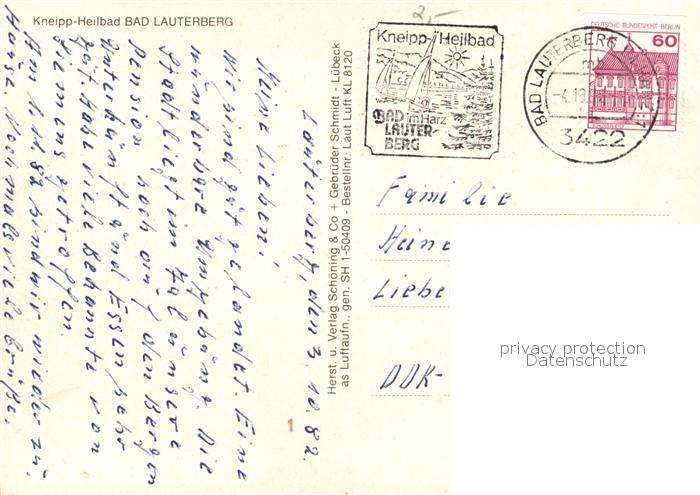 Kneipp-Heilbad BAD LAUTERBERG
2,-
Kneipp-Heilbad
BAD im Harz
LAUTER-
BERG
BAD LAUTERBERG
-4.10.
3422
DEUTSCHE BUNDESPOST BERLIN
60
Lauterberg, den 3.10.82.
Meine Lieben!
Wir sind gut gelandet. Eine
wunderbare Umgebung. Die
Stadt liegt im Tal unsere
Pension hoch auf den Bergen
Unterkunft und Essen sehr
gut. Haben viele Bekannte von
getroffen.
Am sind wir wieder zu
Hause. Nochmals viele Grüße.
Herst. u. Verlag Schöning & Co + Gebrüder Schmidt - Lübeck
as Luftaufn., gen. SH 1-50409 - Bestellnr. Laut Luft KL 8120
Familie
Heine
Liebe
DDR-
1
privacy protection
Datenschutz